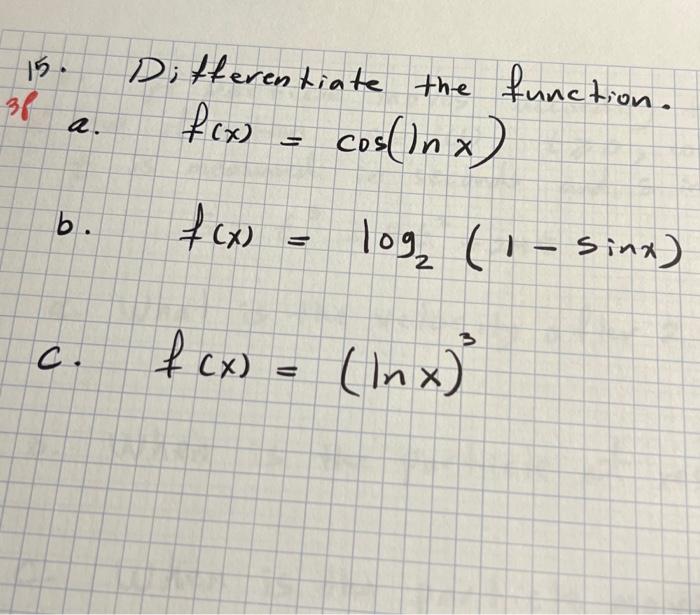 15. Differentiate the function.
3p
a. f(x) = cos(ln x)
b. f(x) = log₂ (1 - sinx)
c. f(x) = (ln x)³